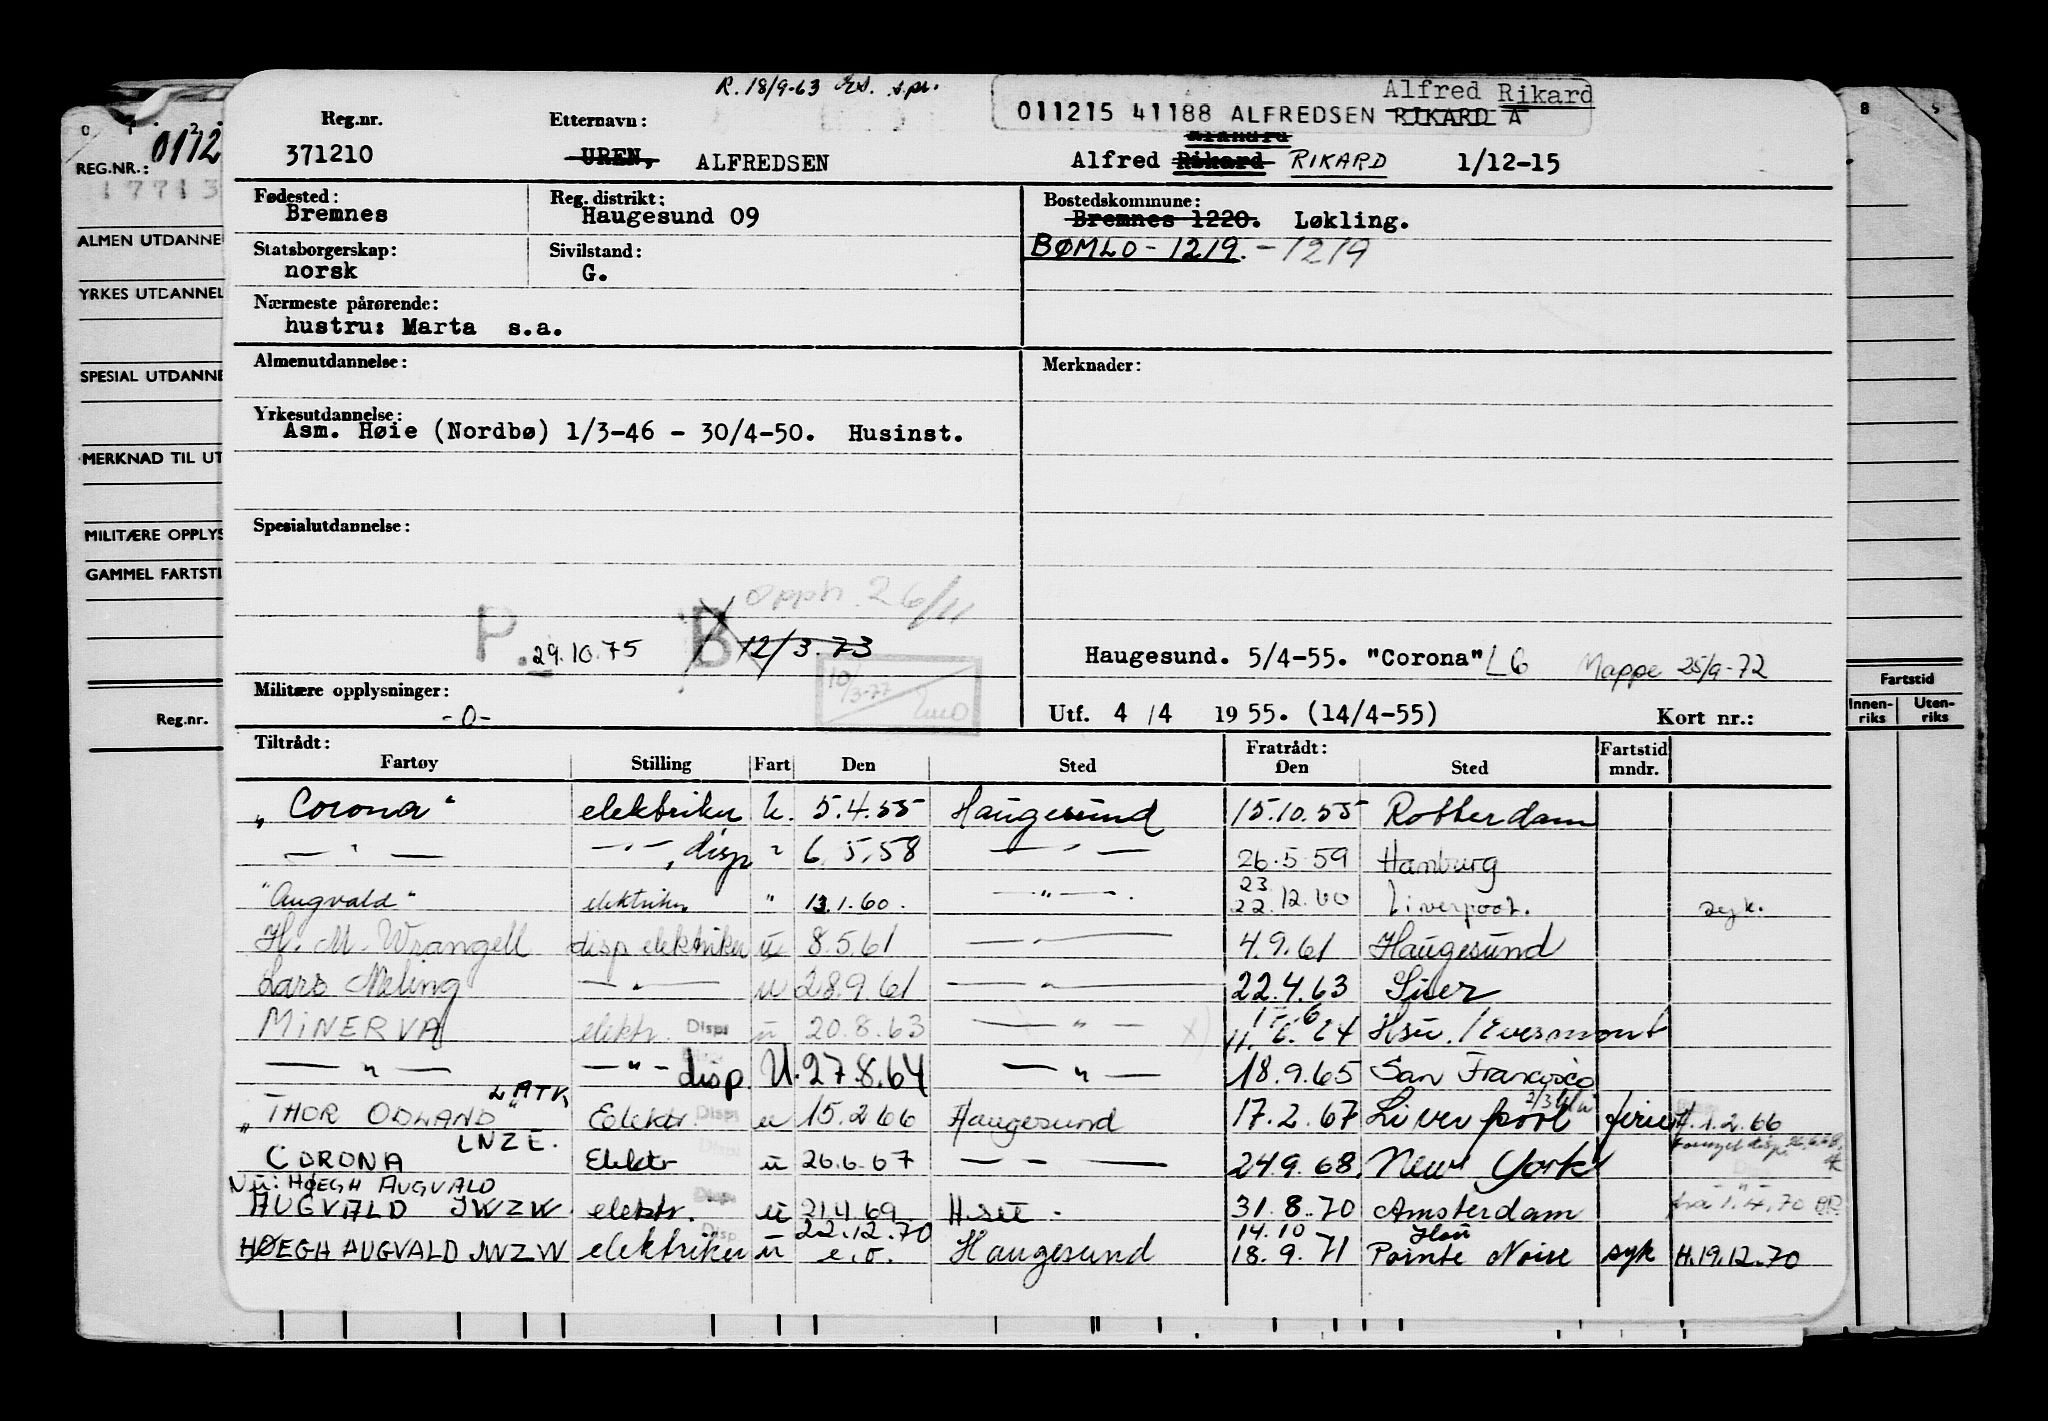 R. 18/9-63
Alfred Rikard
011215 41188 ALFREDSEN RIKARD A
Reg.nr. Etternavn:
371210 UREN, ALFREDSEN Alfred Rikard RIKARD 1/12-15
REG.NR.: 0112
17713
Fødested: Reg. distrikt: Bostedskommune:
Bremnes Haugesund 09 Bremnes 1220. Løkling.
Statsborgerskap: Sivilstand: BØMLO - 1219. - 1219
norsk G.
Nærmeste pårørende:
hustru: Marta s.a.
Almenutdannelse: Merknader:
Yrkesutdannelse:
Asm. Høie (Nordbø) 1/3-46 - 30/4-50. Husinst.
Spesialutdannelse:
Opph. 26/11
P. 29.10.75 B 12/3.73
10/3-77
Haugesund. 5/4-55. "Corona" L6 Mappe 25/9-72
Militære opplysninger:
-0-
Utf. 4 /4 1955. (14/4-55) Kort nr.:
ALMEN UTDANNE
YRKES UTDANNEL
SPESIAL UTDANNE
MERKNAD TIL UT
MILITÆRE OPPLYS
GAMMEL FARTSTI
Reg.nr.
Fartstid
Innen-riks Uten-riks
Tiltrådt: Fratrådt: Fartstid
Fartøy Stilling Fart Den Sted Den Sted mndr.
"Corona" elektriker U. 5.4.55 Haugesund 15.10.55 Rotterdam
— " — — " — , disp " 6.5.58 — " — 26.5.59 Hamburg
"Augvald" elektriker " 13.1.60. — " — . 23 22.12.60 Liverpool. syk.
H. M. Wrangell disp elektriker u 8.5.61 — " — 4.9.61 Haugesund
Lars Meling — " — u 28.9.61 — " — 22.4.63
MINERVA elektr. Disp u 20.8.63 — " — x) Hsu. / Evesmont
— " — — " — disp. U. 27.8.64 — " — 18.9.65 San Francisco
"THOR ODLAND" LATK Elektr. Disp u 15.2.66 Haugesund 17.2.67 Liverpool ferie H. 1.2.66
CORONA LNZE. Elektr u 26.6.67 — " — 24.9.68. New York
Nu: HØEGH AUGVALD
AUGVALD JWZW. elektr. u 21.4.69 Hsu. 31.8.70 Amsterdam fra 1.4.70 BR.
HØEGH AUGVALD JWZW elektriker u 22.12.70 e.o. Haugesund 14.10 Hsu 18.9.71 Pointe Noire syk H.19.12.70